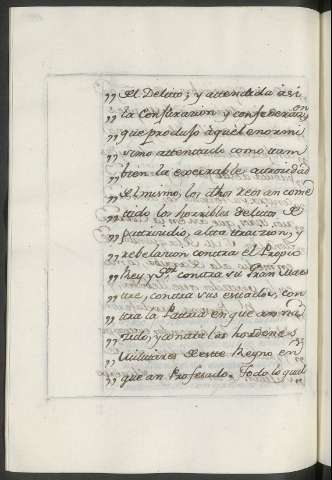 „ del Delito; y attendida assi
„ la Conspirazion y confederaz.on
„ que produjo àquel enormi
„ simo attentado como tam
„ bien la execrable atrozidad
„ del mismo, los dhos reos an come
„ tido los horribles delitos de
„ parricidio, alta traizion, y
„ rebelarion contra el Propio
„ Rey y S.or contra su Gran Maes
„ tre, contra sus criador, con
„ tra la Patria en que an na
„ zido, y contra las hordenes
„ Militares de este Reyno en
„ que an Profesado. Todo lo qual